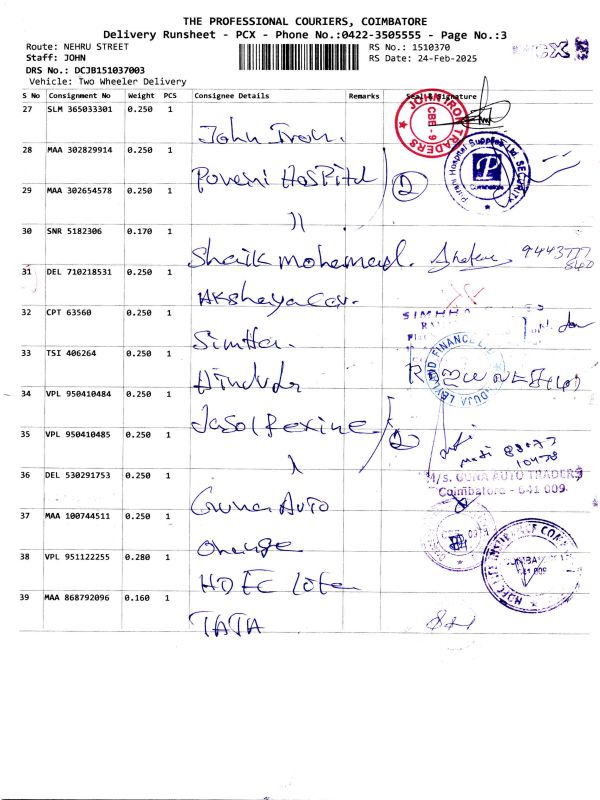 THE PROFESSIONAL COURIERS, COIMBATORE
Delivery Runsheet - PCX - Phone No.:0422-3505555 - Page No.:3
Route: NEHRU STREET
RS No.: 1510370
Staff: JOHN
RS Date: 24-Feb-2025
DRS No.: DCJB151037003
Vehicle: Two Wheeler Delivery
S No Consignment No Weight PCS Consignee Details Remarks Seal & Signature
27 SLM 365033301 0.250 1
John Iron.
JOHN IRON TRADERS
CBE - 9
28 MAA 302829914 0.250 1
Poveni Hospital
2
SECURITY
Coimbatore
29 MAA 302654578 0.250 1
30 SNR 5182306 0.170 1
Shaik mohamed.
9443777
31 DEL 710218531 0.250 1
Akshaya Car.
32 CPT 63560 0.250 1
Simha.
33 TSI 406264 0.250 1
Hinduda
34 VPL 950410484 0.250 1
Jasol Rexine
2
35 VPL 950410485 0.250 1
36 DEL 530291753 0.250 1
Guna Auto
M/s. GUNA AUTO TRADERS
Coimbatore - 641 009.
37 MAA 100744511 0.250 1
Orange
38 VPL 951122255 0.280 1
HDFC Life
641 009
39 MAA 868792096 0.160 1
TATA